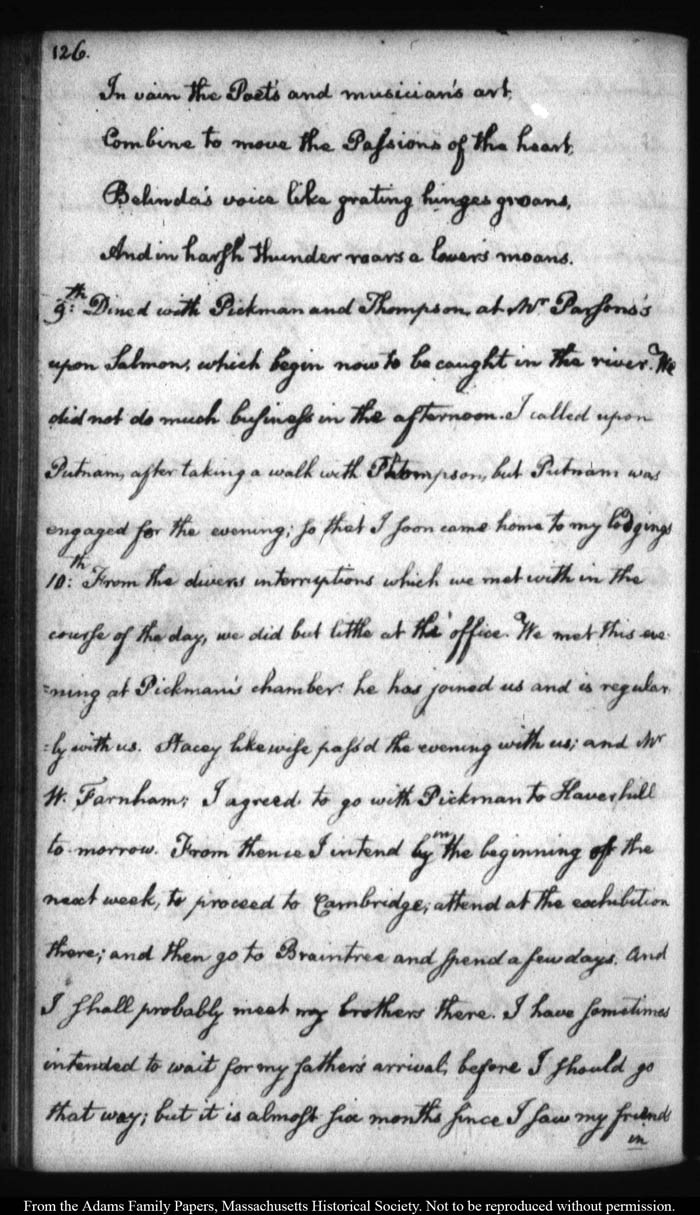 126.
In vain the Poet's and musician's art,
Combine to move the Passions of the heart,
Belinda's voice like grating hinges groans,
And in harsh thunder roars a lover's moans.
9:th Dined with Pickman and Thompson, at Mr Parsons's
upon Salmon, which begin now to be caught in the river. We
did not do much business in the afternoon. I called upon
Putnam, after taking a walk with Thompson, but Putnam was
engaged for the evening; so that I soon came home to my lodgings
10:th From the divers interruptions which we met with in the
course of the day, we did but little at the office. We met this eve-
=ning at Pickman's chamber: he has joined us and is regular-
=ly with us. Stacey likewise pass'd the evening with us; and Mr
W. Farnham; I agreed to go with Pickman to Haverhill
to-morrow. From thence I intend by in the beginning of the
next week, to proceed to Cambridge; attend at the exhibition
there; and then go to Braintree and spend a few days. And
I shall probably meet my brothers there. I have sometimes
intended to wait for my father's arrival, before I should go
that way; but it is almost six months since I saw my friends
in
From the Adams Family Papers, Massachusetts Historical Society. Not to be reproduced without permission.